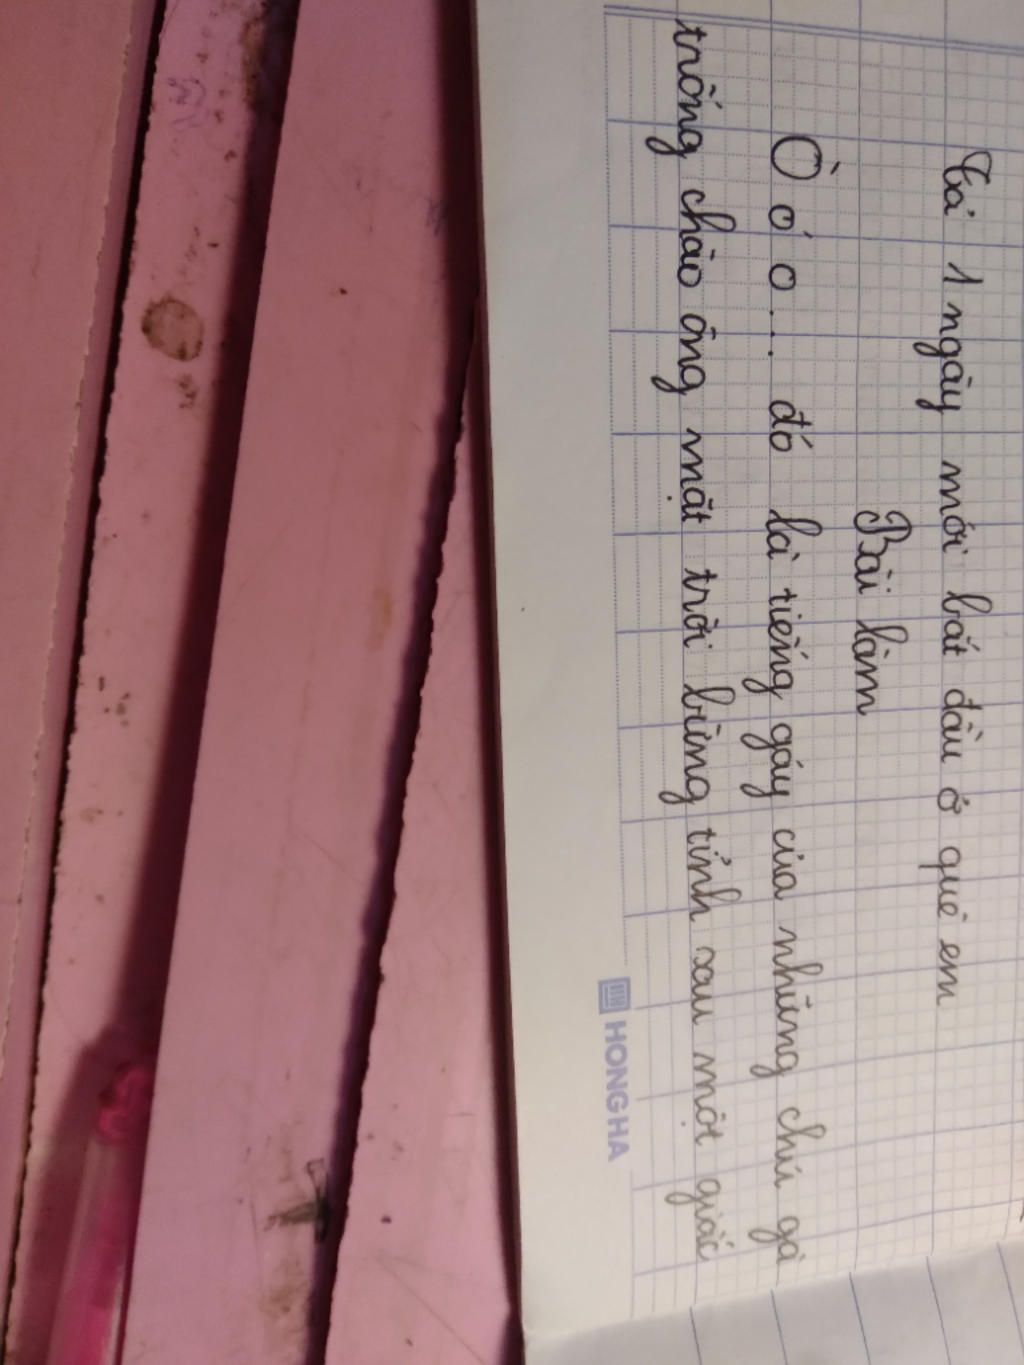 Tả 1 ngày mới bắt đầu ở quê em
Bài làm
Ò ó o... đó là tiếng gáy của những chú gà
trống chào ông mặt trời bừng tỉnh sau một giấc
HONG HA